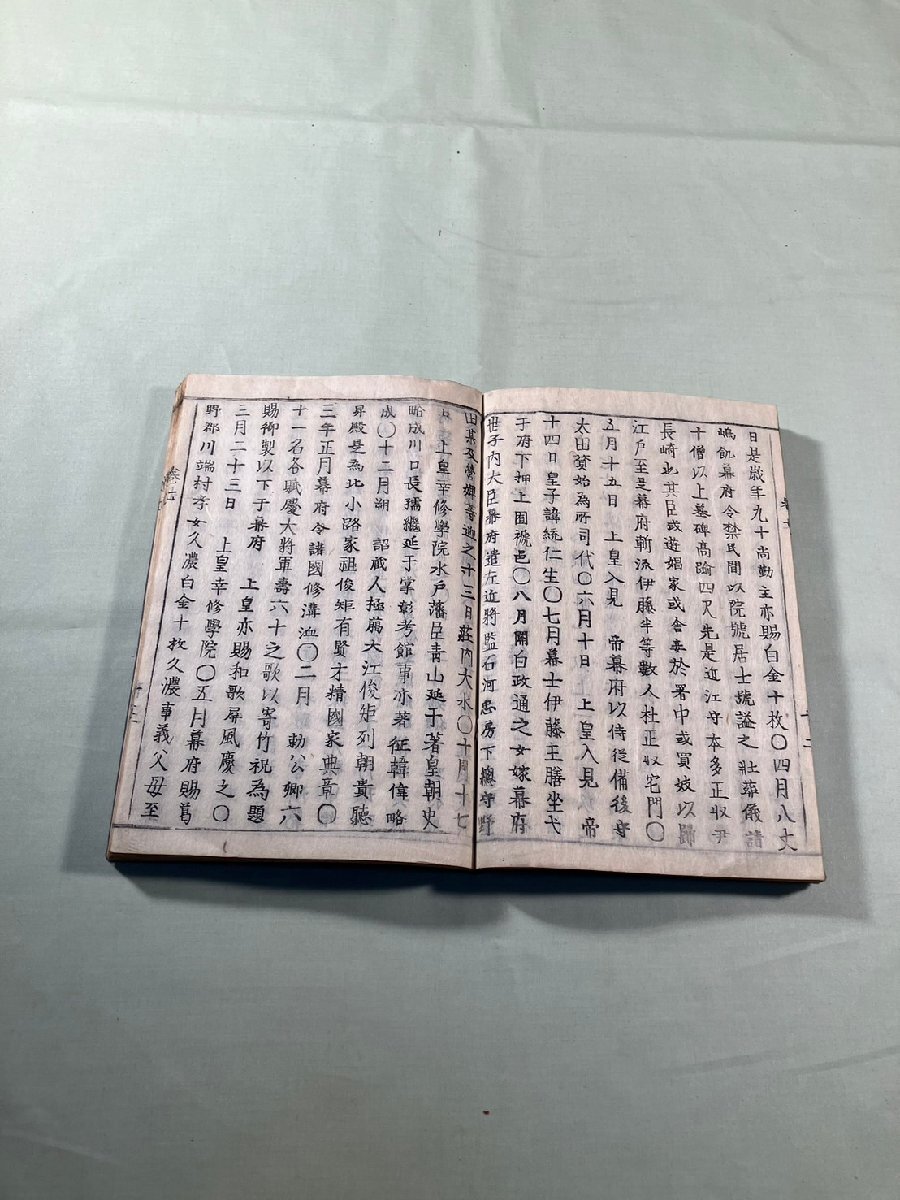 日是歳年九十尚勤主亦賜白金十枚〇四月八丈
嶋飢幕府令禁民間以院號居士號謚之壯葬儀請
十僧以上墓碑高踰四尺先是近江守本多正収尹
長崎也其臣或遊娼家或會妻於署中或買妓以歸
江戸至是幕府斬流伊藤半等數人杜正収宅門〇
五月十五日　上皇入見　帝幕府以侍従備後守
太田資始為所司代〇六月十日　上皇入見　帝
十四日　皇子諱統仁生〇七月幕士伊藤王膳坐弋
于府下押上囿褫邑〇八月關白政通之女嫁幕府
世子内大臣幕府遣左近將監石河忠房下總守野
田某及營婢普過之十三日荘内大水〇十月十七
日　上皇幸修學院水戸藩臣青山延于著皇朝史
略成川口長孺繼延于掌彰考館事亦著征韓偉略
成〇十二月朔　詔蔵人極﨟大江俊矩列朝貴聽
昇殿是為北小路家祖俊矩有賢才精國家典章〇
三年正月幕府令諸國修溝洫〇二月　勅公卿六
十一名各賦慶大將軍壽六十之歌以寄竹祝為題
賜御製以下于幕府　上皇亦賜和歌屏風慶之〇
三月二十三日　上皇幸修學院〇五月幕府賜葛
野郡川端村孝女久濃白金十枚久濃事義父母至